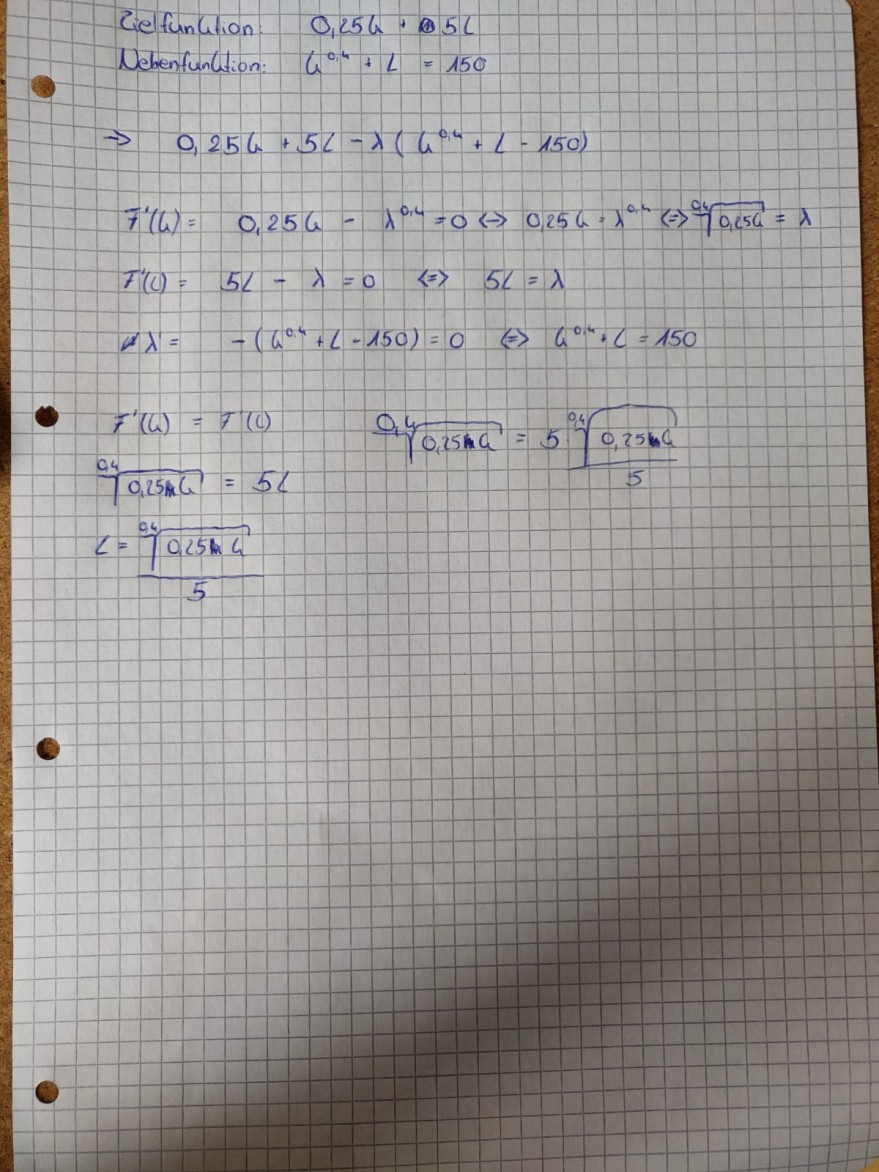 Zielfunktion: 0,25G + 5L
Nebenfunktion: G^0,4 + L = 150
→ 0,25G + 5L - λ(G^0,4 + L - 150)
F'(G) = 0,25G - λ^0,4 = 0 <-> 0,25G = λ^0,4 <=> ^0,4√0,25G = λ
F'(L) = 5L - λ = 0 <=> 5L = λ
λ' = -(G^0,4 + L - 150) = 0 <=> G^0,4 + L = 150
F'(G) = F'(L)
^0,4√0,25G = 5L
L = ^0,4√0,25G / 5
^0,4√0,25G = 5 ^0,4√0,25G / 5